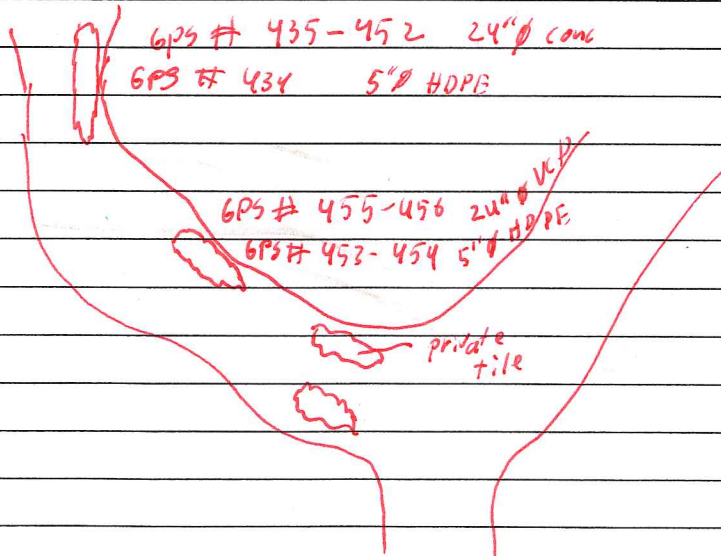 GPS # 435-452 24"ø conc
GPS # 434 5"ø HDPE
GPS # 455-456 24"ø VCP
GPS # 453-454 5"ø HDPE
private
tile